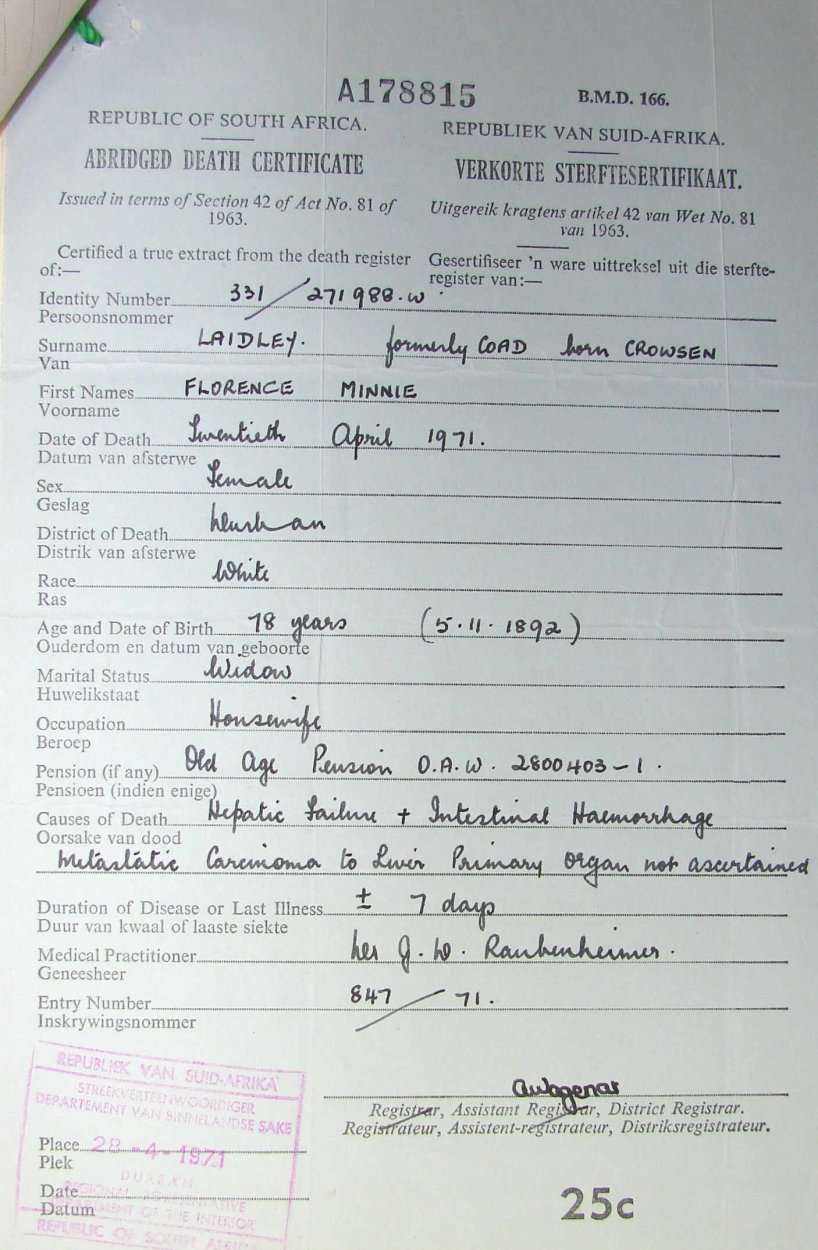 A178815 B.M.D. 166.
REPUBLIC OF SOUTH AFRICA. REPUBLIEK VAN SUID-AFRIKA.
ABRIDGED DEATH CERTIFICATE VERKORTE STERFTESERTIFIKAAT.
Issued in terms of Section 42 of Act No. 81 of 1963.
Uitgereik kragtens artikel 42 van Wet No. 81 van 1963.
Certified a true extract from the death register of:—
Gesertifiseer 'n ware uittreksel uit die sterfte-
register van:—
Identity Number 331/271988.W
Persoonsnommer
Surname LAIDLEY. formerly COAD born CROWSEN
Van
First Names FLORENCE MINNIE
Voorname
Date of Death Twentieth April 1971.
Datum van afsterwe
Sex Female
Geslag
District of Death Durban
Distrik van afsterwe
Race White
Ras
Age and Date of Birth 78 years (5.11.1892)
Ouderdom en datum van geboorte
Marital Status Widow
Huwelikstaat
Occupation Housewife
Beroep
Pension (if any) Old Age Pension O.A.W. 2800403-1.
Pensioen (indien enige)
Causes of Death Hepatic Failure + Intestinal Haemorrhage
Oorsake van dood
Metastatic Carcinoma to Liver Primary organ not ascertained
Duration of Disease or Last Illness ± 7 days
Duur van kwaal of laaste siekte
Medical Practitioner Dr J. D. Raubenheimer.
Geneesheer
Entry Number 847/71.
Inskrywingsnommer
REPUBLIEK VAN SUID-AFRIKA
STREEKVERTEENWOORDIGER
DEPARTEMENT VAN BINNELANDSE SAKE
Registrar, Assistant Registrar, District Registrar.
Registrateur, Assistent-registrateur, Distriksregistrateur.
Place 28-4-1971
Plek
DURBAN
REGIONAL REPRESENTATIVE
Date
DEPARTMENT OF THE INTERIOR
Datum
REPUBLIC OF SOUTH AFRICA
25c